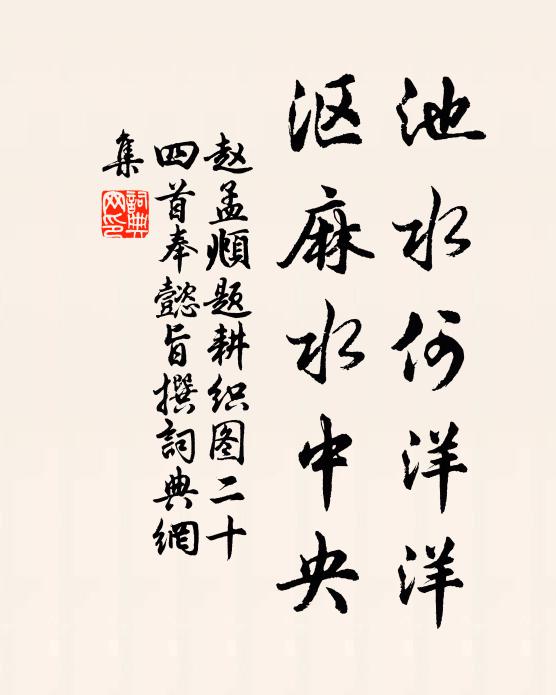 池水何洋洋
沤麻水中央
赵孟頫题耕织图二十
四首奉懿旨撰詞典網
集
詞典網印